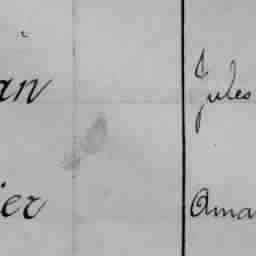 an Jules
ier Ama